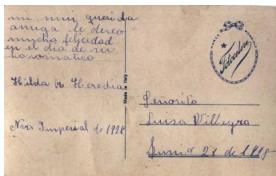 mi muy querida
amiga le deseo
mucha felicidad
en el dia de su
honomatico
Hilda R. Heredia
Nva Imperial de 1928
Made in Italy
Señorita
Luisa Villegra
Junio 21 de 1928